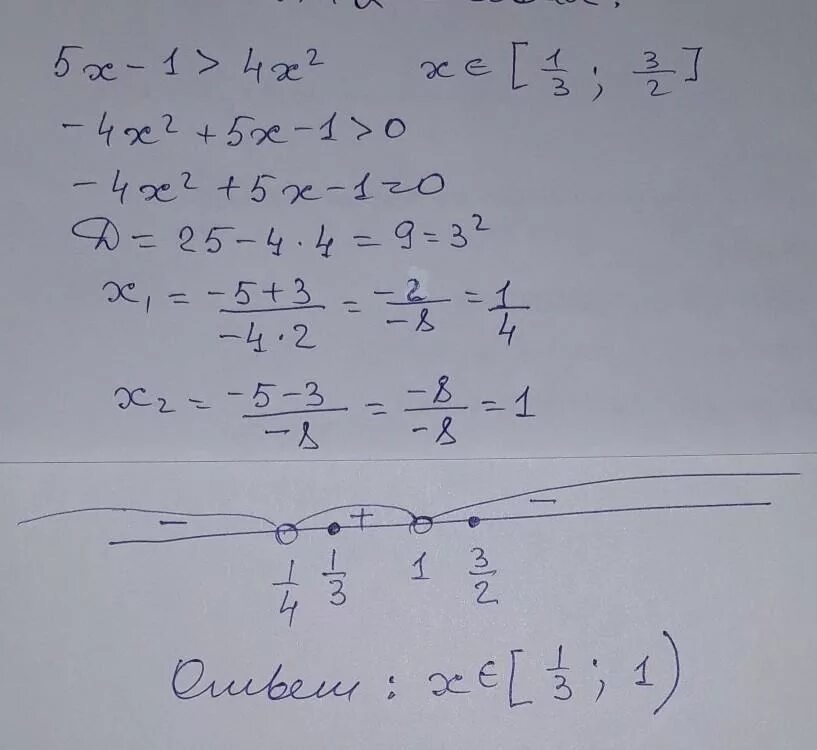 5x - 1 > 4x² x ∈ [1/3 ; 3/2]
-4x² + 5x - 1 > 0
-4x² + 5x - 1 = 0
D = 25 - 4 · 4 = 9 = 3²
x₁ = (-5 + 3)/(-4 · 2) = (-2)/(-8) = 1/4
x₂ = (-5 - 3)/(-8) = (-8)/(-8) = 1
- + -
1/4 1/3 1 3/2
Ответ : x ∈ [1/3 ; 1)